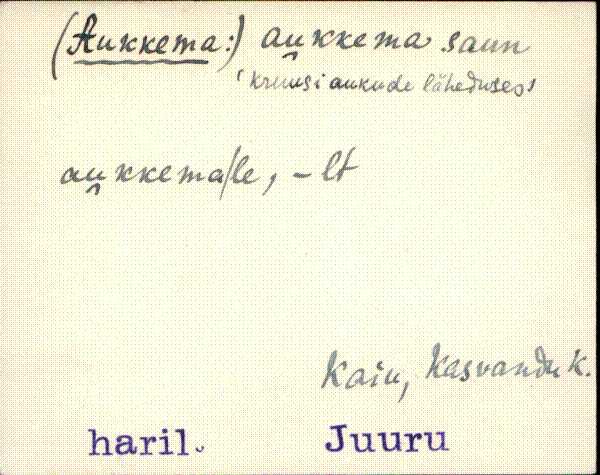 (Aukkema:) au̯kkema saun
'kruusiaukude läheduses'
au̯kkema/le, -lt
Kaiu, Kasvandu k.
haril. Juuru